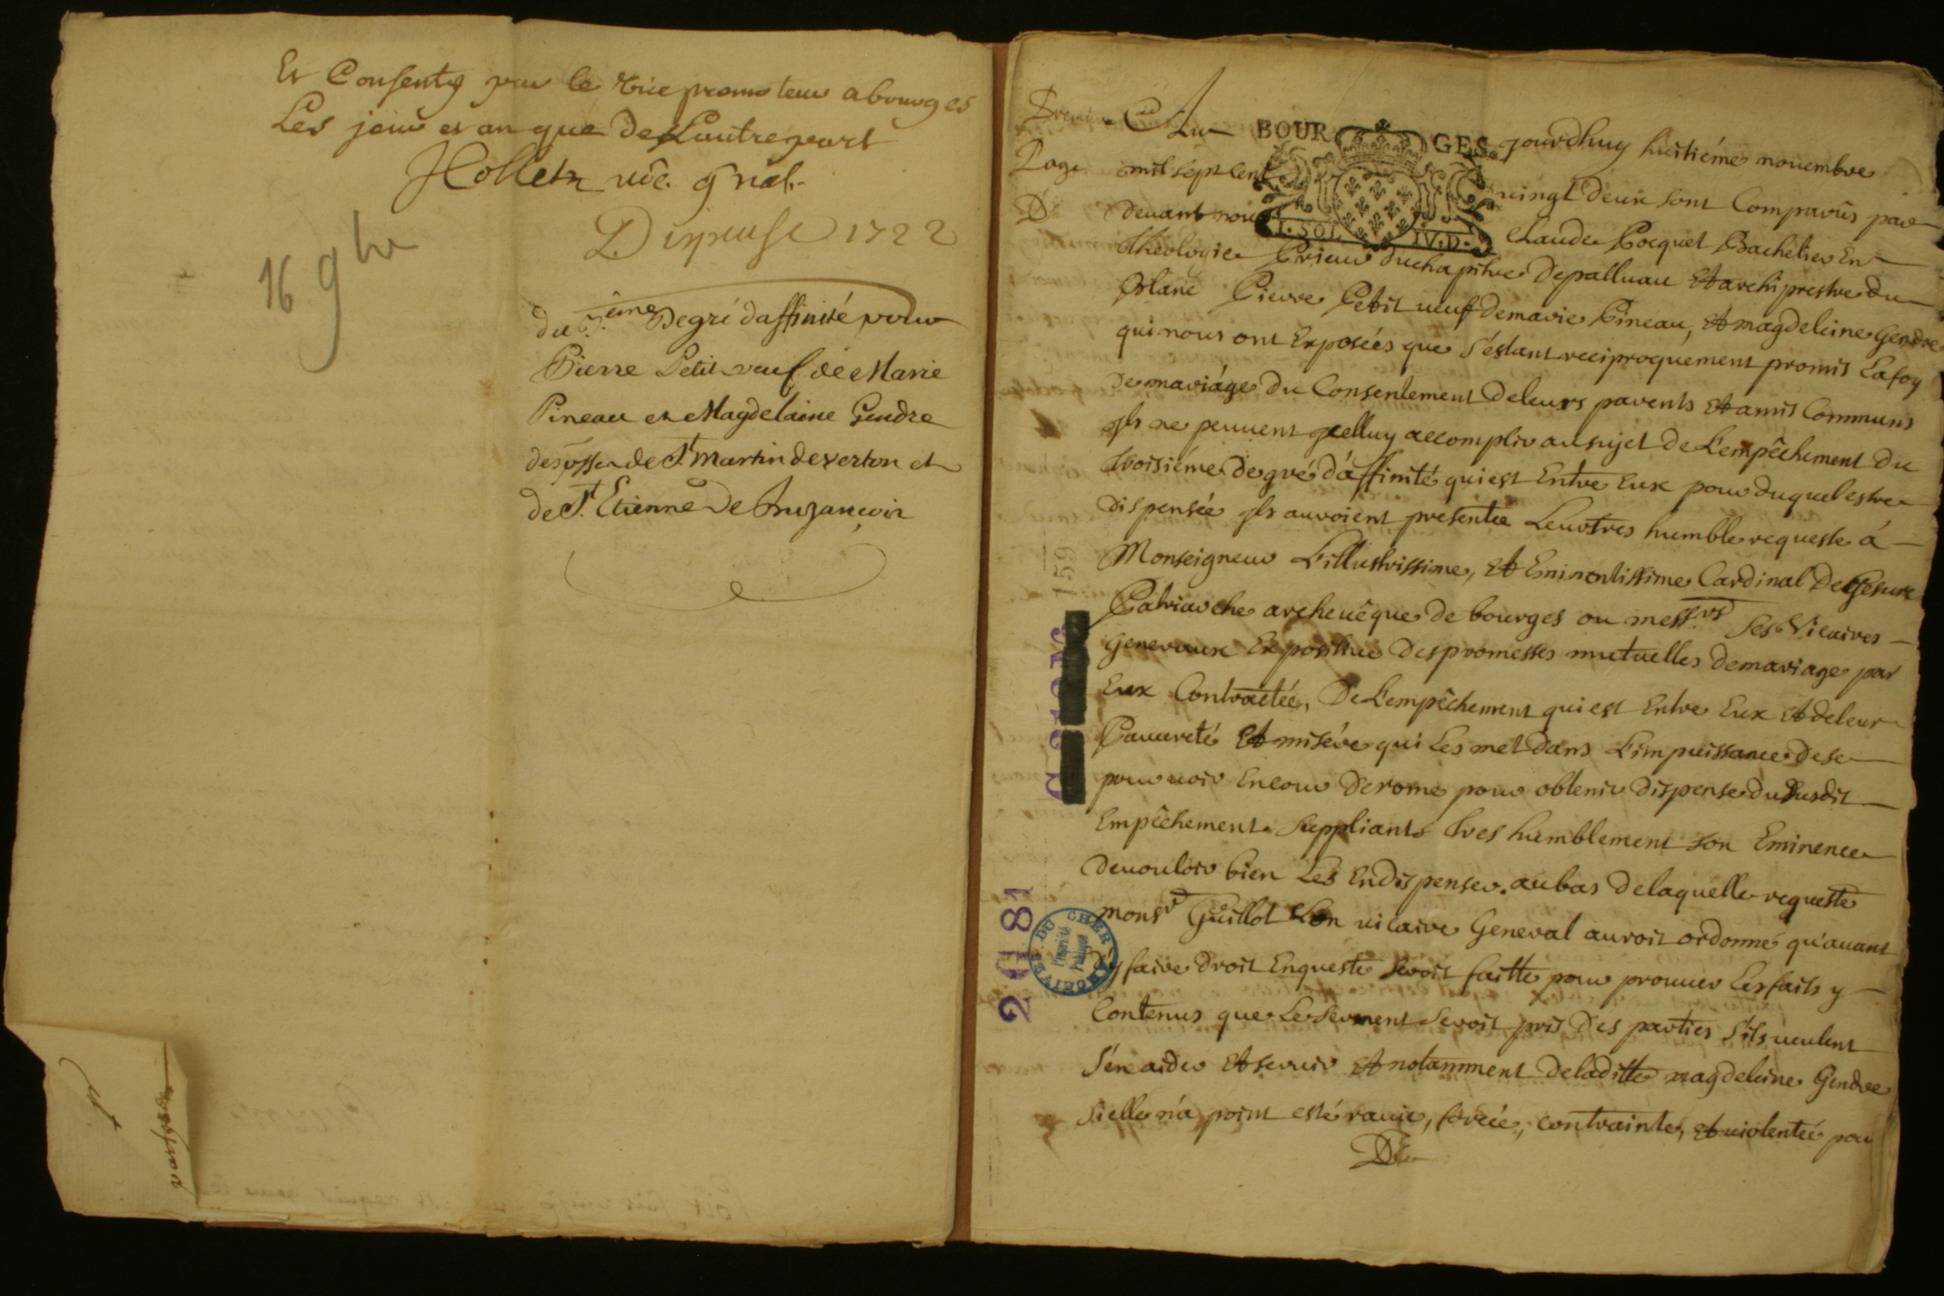 Et Consenty par le vice promoteur a bourges
Les jour et an que de Lautre part
vic. gnal.
Dispense 1722
16 9bre
du 3.eme Degré daffinité pour
Pierre Petit veuf de Marie
Pineau et Magdelaine Gendre
des psses de St. Martin de verton et
de St. Etienne De Buzançoir
Premiere
Page
Au BOURGES jourdhuy huitiéme nouembre
mil sept cent vingt deux sont Comparûs par
1. SOL IV. D.
deuant nous Claude Pocquet Bachelier En
théologie Prieur du chapitre de palluau Et archiprestre du
Blanc Pierre Petit ueuf de marie Pineau, Et magdeleine Gendre
qui nous ont Exposées que s'éstant reciproquement promis La foy
de mariáge du Consentement de leurs parents Et amis Communs
jls ne peuuent jcelluy accomplir au sujet de L'empêchement du
troisiéme degré d'affinité qui est Entre Eux pour duquel estre
dispensée jls auroient présentée Leur tres humble requeste á
Monseigneur L'illustrissime, Et Eminentissime Cardinal De Gesure
Patriarche archeuêque de bourges ou mess.rs Ses Vicaires
Generaux Expositiue des promesses mutuelles de mariage par
Eux Contractée, De L'empêchement qui est Entre Eux Et de leur
Pauureté Et misére qui Les met dans L'impuissance de se
pouruoir En cour de rome pour obtenir dispense du susdit
Empêchement Suppliants tres humblement son Eminence
de vouloir bien Les En dispenser. au bas de laquelle requeste
monsr Guillot son uicaire General auroit ordonné qu'auant
y faire droit Enqueste seroit faitte pour prouuer Les faits y
Contenus que Le serment seroit pris des parties s'ils ueulent
s'en aider Et seruir Et notamment de laditte magdeleine Gendre
si elle n'a point esté rauie, forcée, contrainte, Et uiolentée pour
159
2G 81
ARCHIVES DU CHER
Propriété Publique